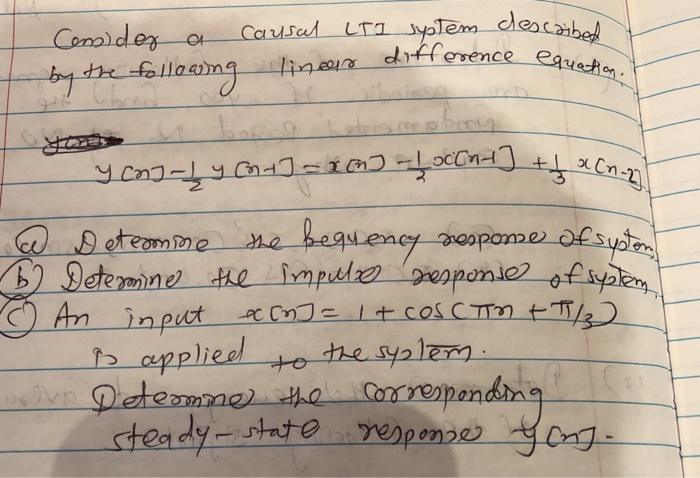 Consider a causal LTI system described
by the following linear difference equation.
y[n] - 1/2 y[n-1] = x[n] - 1/2 x[n-1] + 1/3 x[n-2]
(a) Determine the frequency response of system
(b) Determine the impulse response of system.
(c) An input x[n] = 1 + cos(πn + π/3)
is applied to the system.
Determine the corresponding
steady-state response y[n].